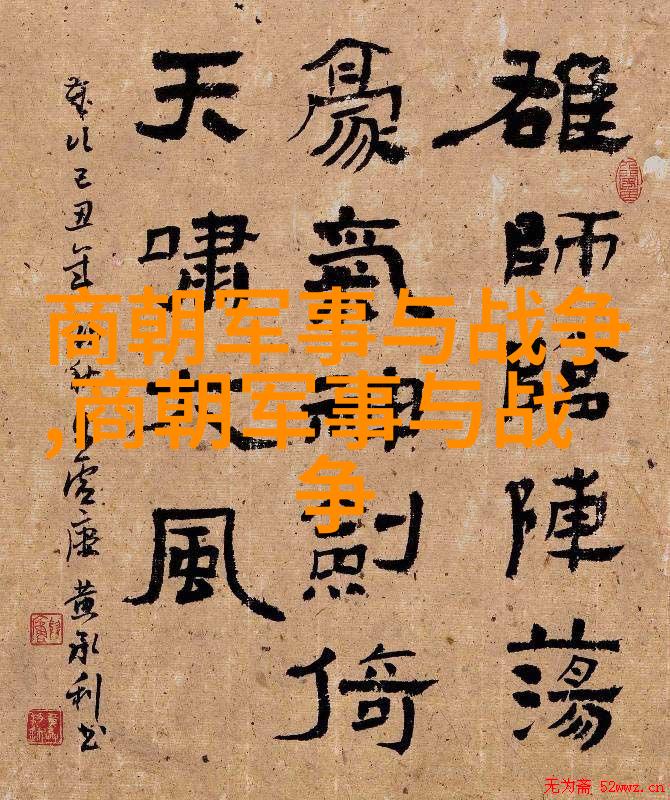 雄師臨陣蕩
豪氣神劍倚
天嘯大風
歲次己丑年 秋 黃承利書
商朝军事与战争
,商朝军事与战
争
无为斋 52wwz.cn